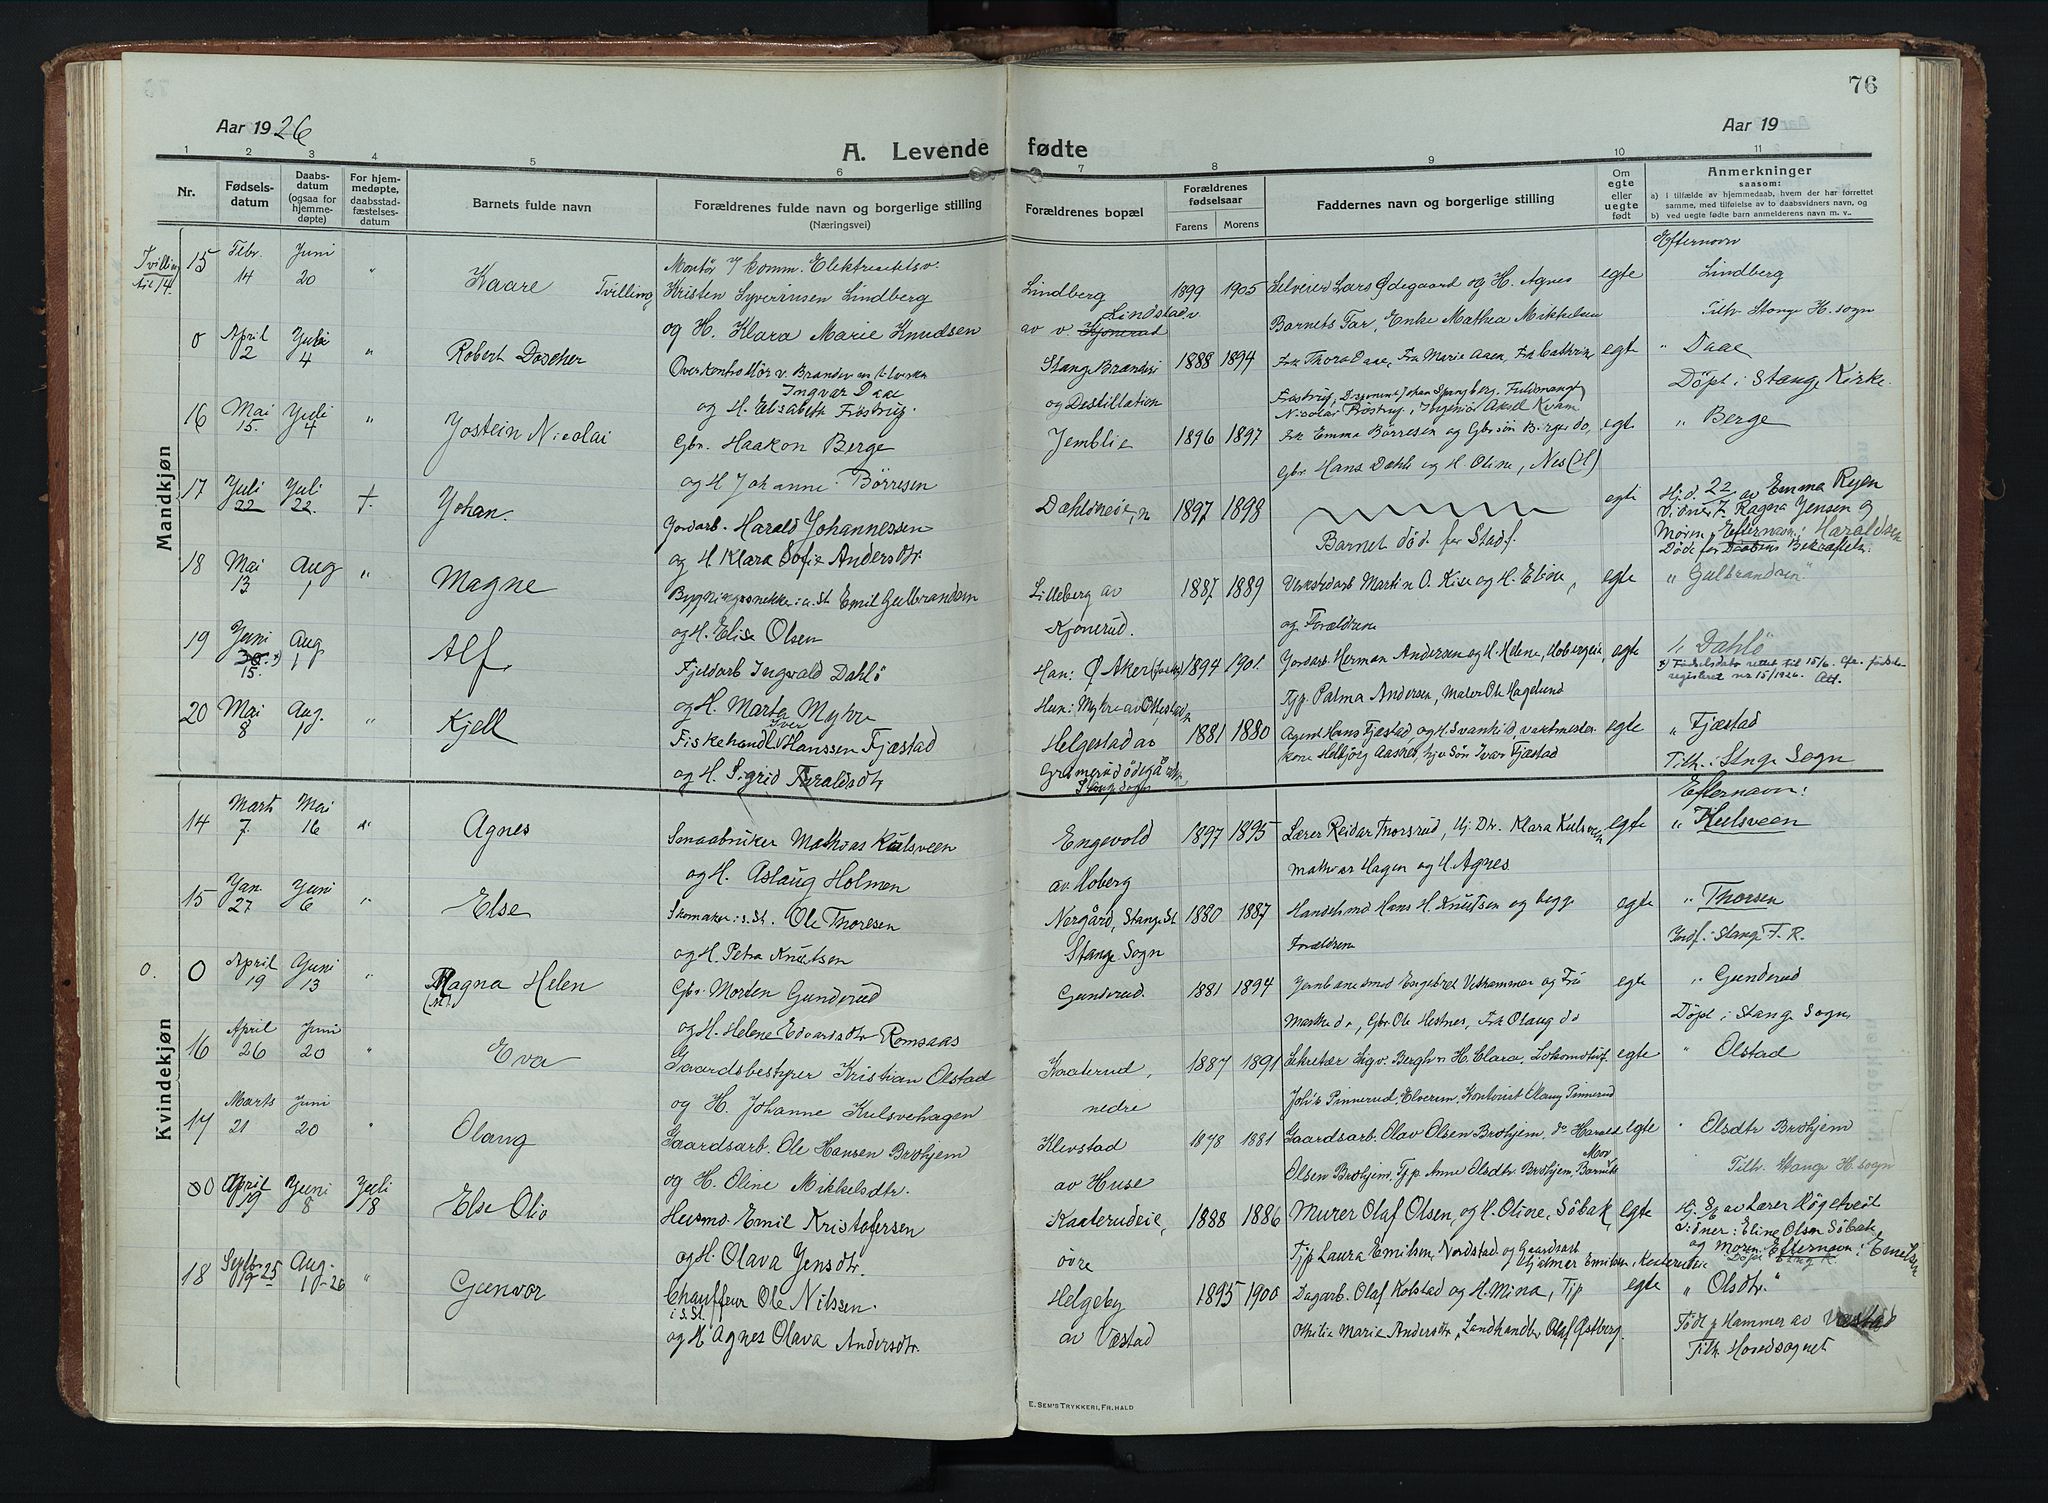 76
Aar 1926
Aar 19
A. Levende fødte
1 2 3 4 5 6 7 8 9 10 11
Nr.
Fødsels-
datum
Daabs-
datum
(ogsaa for
hjemme-
døpte)
For hjem-
medøpte,
daabsstad-
fæstelses-
datum
Barnets fulde navn
Forældrenes fulde navn og borgerlige stilling
(Næringsvei)
Forældrenes bopæl
Forældrenes
fødselsaar
Farens Morens
Faddernes navn og borgerlige stilling
Om
egte
eller
uegte
født
Anmerkninger
saasom:
a) i tilfælde av hjemmedaab, hvem der har forrettet
samme, med tilføielse av to daabsvidners navn, og
b) ved uegte fødte barn anmelderens navn m. v..
Mandkjøn
Tvilling
til 14.
15 Febr. 14 Juni 20 " Kaare Tvilling
Montør v/ komm. Elektricitetsv.
Kristen Syverinsen Lindberg
og H. Klara Marie Knudsen
Lindberg
Lindstad v
av v. Kjonerud
1899 1905
Selveier Lars Ødegaard og H. Agnes
Barnets Far, Enke Mathea Mikkelsen
egte
Efternavn
Lindberg
Tilh. Stange H. sogn
0 April 2 Juli 4 " Robert Doscher
Overkontrollør v. Brændev
Ingvar Daae
og H. Elisabeth Fostrup.
Stange Brænderi
og Destillation
1888 1894
Frk Thora Daae, Fru Marie Aaen, Frk Cathrin
egte
" Daae
Døpt i Stange Kirke.
16 Mai 15. Juli 4 " Jostein Nicolai
Gbr. Haakon Berge
og H Johanne Børresen
Jemblie
1896 1897
Frk Emma Børresen og Gbr.søn Birger do,
Gbr. Hans Dæhli og H. Oline, Nes (H)
egte
" Berge
17 Juli 22 Juli 22. † Johan.
Jordarb. Harald Johannessen
og H Klara Sofie Andersdtr.
Dahlöneie, n
1897 1898
Barnet død før Stadf.
egte
Hj.d. 22/7 av Emma Ryen
Vidner: Ragna Jensen og
Moren. Efternavn: Haraldsen
Døde før Daabens Bekræftelse.
18 Mai 13. Aug 1 " Magne
Bygningssnekker i s. St. Emil Gulbrandsen
og H. Elise Olsen
Lilleberg av
Kjonerud.
1887 1889
Verkstedarb Martin O. Kise og H. Eline,
og Forældrene
egte
" Gulbrandsen"
19 Juni 30. *) 15. Aug. 1 Alf.
Fjeldarb Ingvald Dahlö
og H. Marta Myhre
Han: Ø Aker
Hun: Myhre av Ottestad
1894 1901.
Jordarb. Herman Andersen og H. Helene, Hobergeie,
Tjp. Palma Andersen, Maler Ole Hagelund
egte
" Dahlö
*) Fødselsdato rettet til 15/6. Cfr. fødsels-
registeret nr 15/1926.
20 Mai 8 Aug. 1 " Kjell
Fiskehandl Iver Hanssen Fjæstad
og H. Sigrid Taraldsdtr
Helgestad av
Gramerud ödegård
Stange Sogn
1881 1880
Agent Hans Fjæstad, og H. Svanhild, vaktmester
kone Helbjörg Aasnes, hjv Søn Ivar Fjæstad
egte
" Fjæstad
Tilh.: Stange Sogn
Kvindekjøn
14 Marts 7. Mai 16 " Agnes
Smaabruker Mathias Kulsveen
og H. Aslaug Holmen
Engevold
av. Hoberg
1897 1895
Lærer Reidar Thorsrud, Hj. Dtr. Klara Kulsveen
Mathias Hagen og H. Agnes.
egte
Efternavn:
" Kulsveen
15 Jan. 27 Juni 6 " Else
Skomaker i s. St. Ole Thoresen
og H. Petra Knutsen
Norgård, Stange St
Stange Sogn
1880 1887
Handelsmd Hans H. Knutsen og begge
Forældrene
egte
" Thorsen
Indf. i Stange F. R.
o. 0 April 19 Juni 13 " Magna Helen
Gbr. Morten Gunderud
og H. Helene Edvardsdtr Romsaas
Gunderud.
1881 1894
Jernbanesmed Engebret Vethammer og Fru
Marthe do, Gbr. Ole Hestnes, Frk Olaug do
egte
" Gunderud
Døpt i Stange Sogn
16 April 26 Juni 20 " Eva
Gaardsbestyrer Kristian Olstad
og H. Johanne Kulsvehagen
Kaaterud,
nedre
1887 1891
Sekretær Sigv. Bergh og H. Clara, Lokomotivf.
Johs Pinnerud, Elverum, Kontorist Olaug Pinnerud
egte
" Olstad
17 Marts 21 Juni 20 " Olaug
Gaardsarb. Ole Hansen Brohjem
og H. Oline Mikkelsdtr.
Klevstad
av Huse
1878 1881
Gaardsarb. Olav Olsen Brohjem, do Harald
Olsen Brohjem, Tjp Anne Olsdtr. Brohjem, Barnets Mor
egte
" Olsdtr Brohjem
Tilh. Stange H. sogn
0 April 19 Juni 8 Juli 18 Else Olio
Husmd. Emil Kristofersen
og H. Olava Jensdtr.
Kaaterudeie,
övre
1888 1886
Murer Olaf Olsen, og H. Oline, Söbak,
Tjp Laura Emilsen, Nordstad og Gaardsarb
Hjelmer Emilsen, Kaaterudeie
egte
Hj. 8/6 av Lærer Högetveit
Vidner: Eline Olsen Söbak,
og Moren. Efternavn: Emilsen
Døpt Stange K.
18 Septbr. 25 19 Aug. 1 - 26 " Gunvor
Chauffeur Ole Nilssen.
i s. St.
og H Agnes Olava Andersdtr.
Helgeby
av Væstad
1895 1900
Dagarb. Olaf Kolstad og H. Mina, Tjp
Othilie Marie Andersdtr, Landhandler Olaf Østberg.
egte
" Olsdtr. "
Født p Hammer av Væstad
Tilh. Hovedsognet
E. SEM'S TRYKKERI, FR. HALD